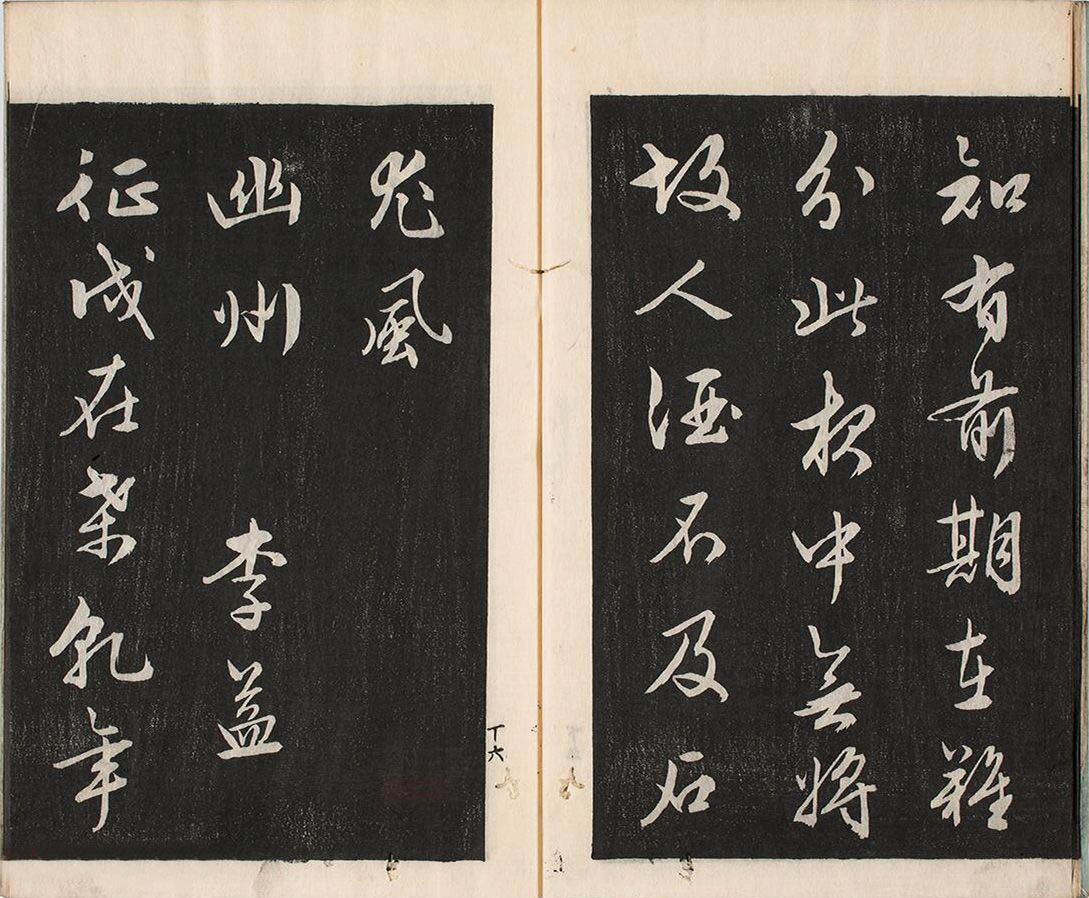 知有前期在難
分此夜中無將
故人酒不及石
尤風
幽州 李益
征戍在桑乾年
丁六